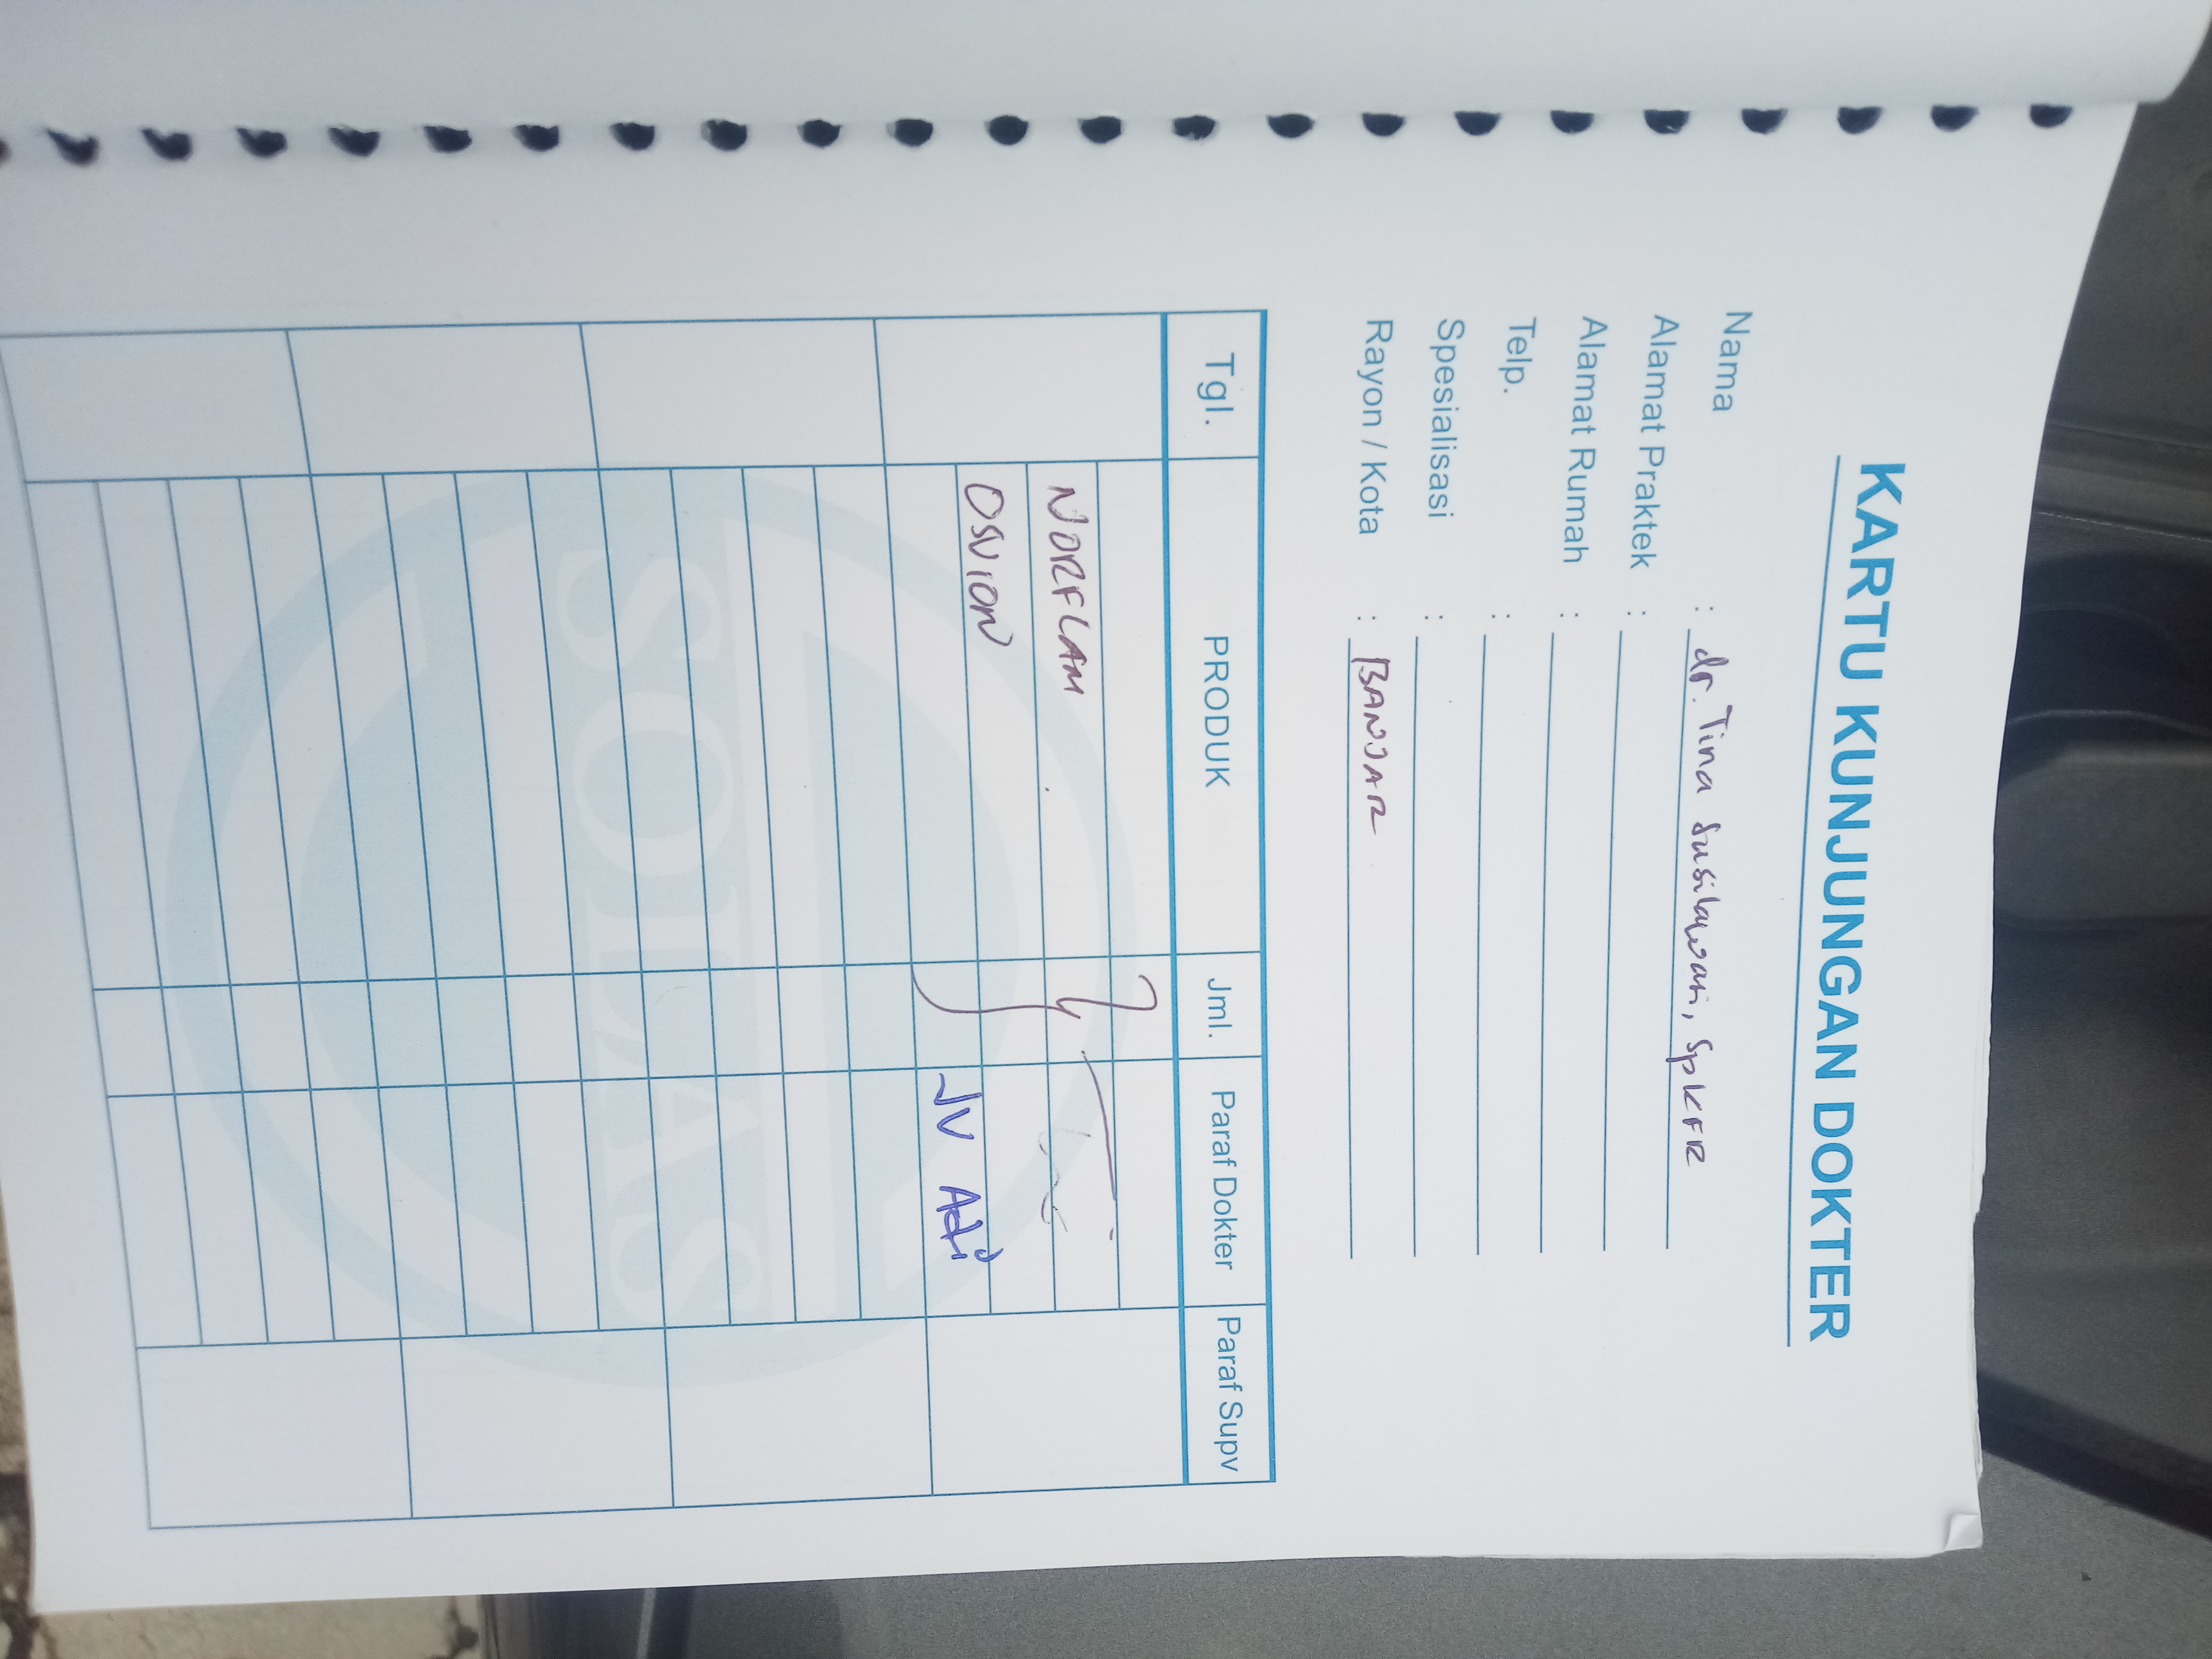 KARTU KUNJUNGAN DOKTER
Nama : dr. Tina Susilawati, SpKFR
Alamat Praktek :
Alamat Rumah :
Telp. :
Spesialisasi :
Rayon / Kota : BANJAR
Tgl. PRODUK Jml. Paraf Dokter Paraf Supv
NORFLAM
OSVION
JV Adi
SOLAS